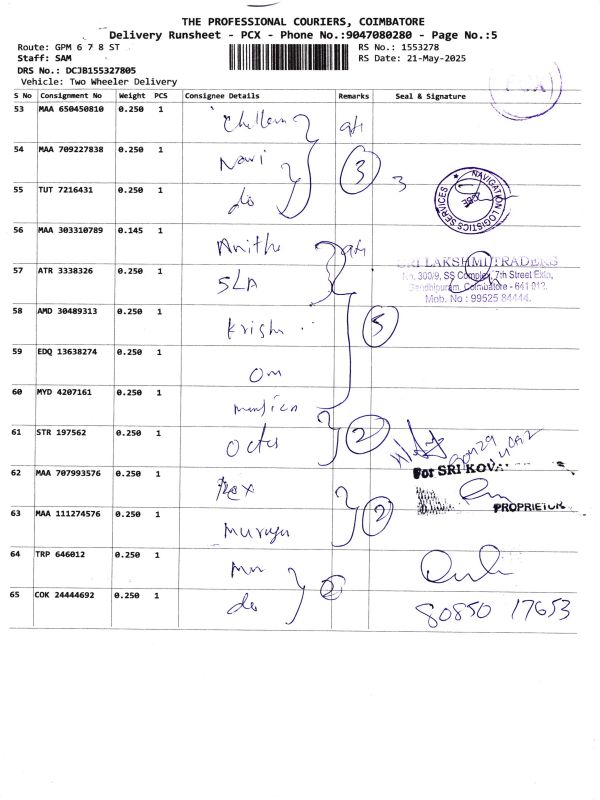 THE PROFESSIONAL COURIERS, COIMBATORE
Delivery Runsheet - PCX - Phone No.:9047080280 - Page No.:5
Route: GPM 6 7 8 ST
RS No.: 1553278
Staff: SAM
RS Date: 21-May-2025
DRS No.: DCJB155327805
Vehicle: Two Wheeler Delivery
S No Consignment No Weight PCS Consignee Details Remarks Seal & Signature
53 MAA 650450810 0.250 1
54 MAA 709227838 0.250 1 3 3
NAVIGATION LOGISTICS SERVICES
55 TUT 7216431 0.250 1 do
56 MAA 303310789 0.145 1
SRI LAKSHMI TRADERS
57 ATR 3338326 0.250 1 SLA
No. 300/9, SS Complex, 7th Street Extn,
Gandhipuram, Coimbatore - 641 012.
Mob. No : 99525 84444.
58 AMD 30489313 0.250 1 Krish 5
59 EDQ 13638274 0.250 1 Om
60 MYD 4207161 0.250 1
61 STR 197562 0.250 1 Octus 2
For SRI KOVAI
62 MAA 707993576 0.250 1
PROPRIETOR
63 MAA 111274576 0.250 1 Muruga 2
64 TRP 646012 0.250 1 2
65 COK 24444692 0.250 1 do 80850 17653